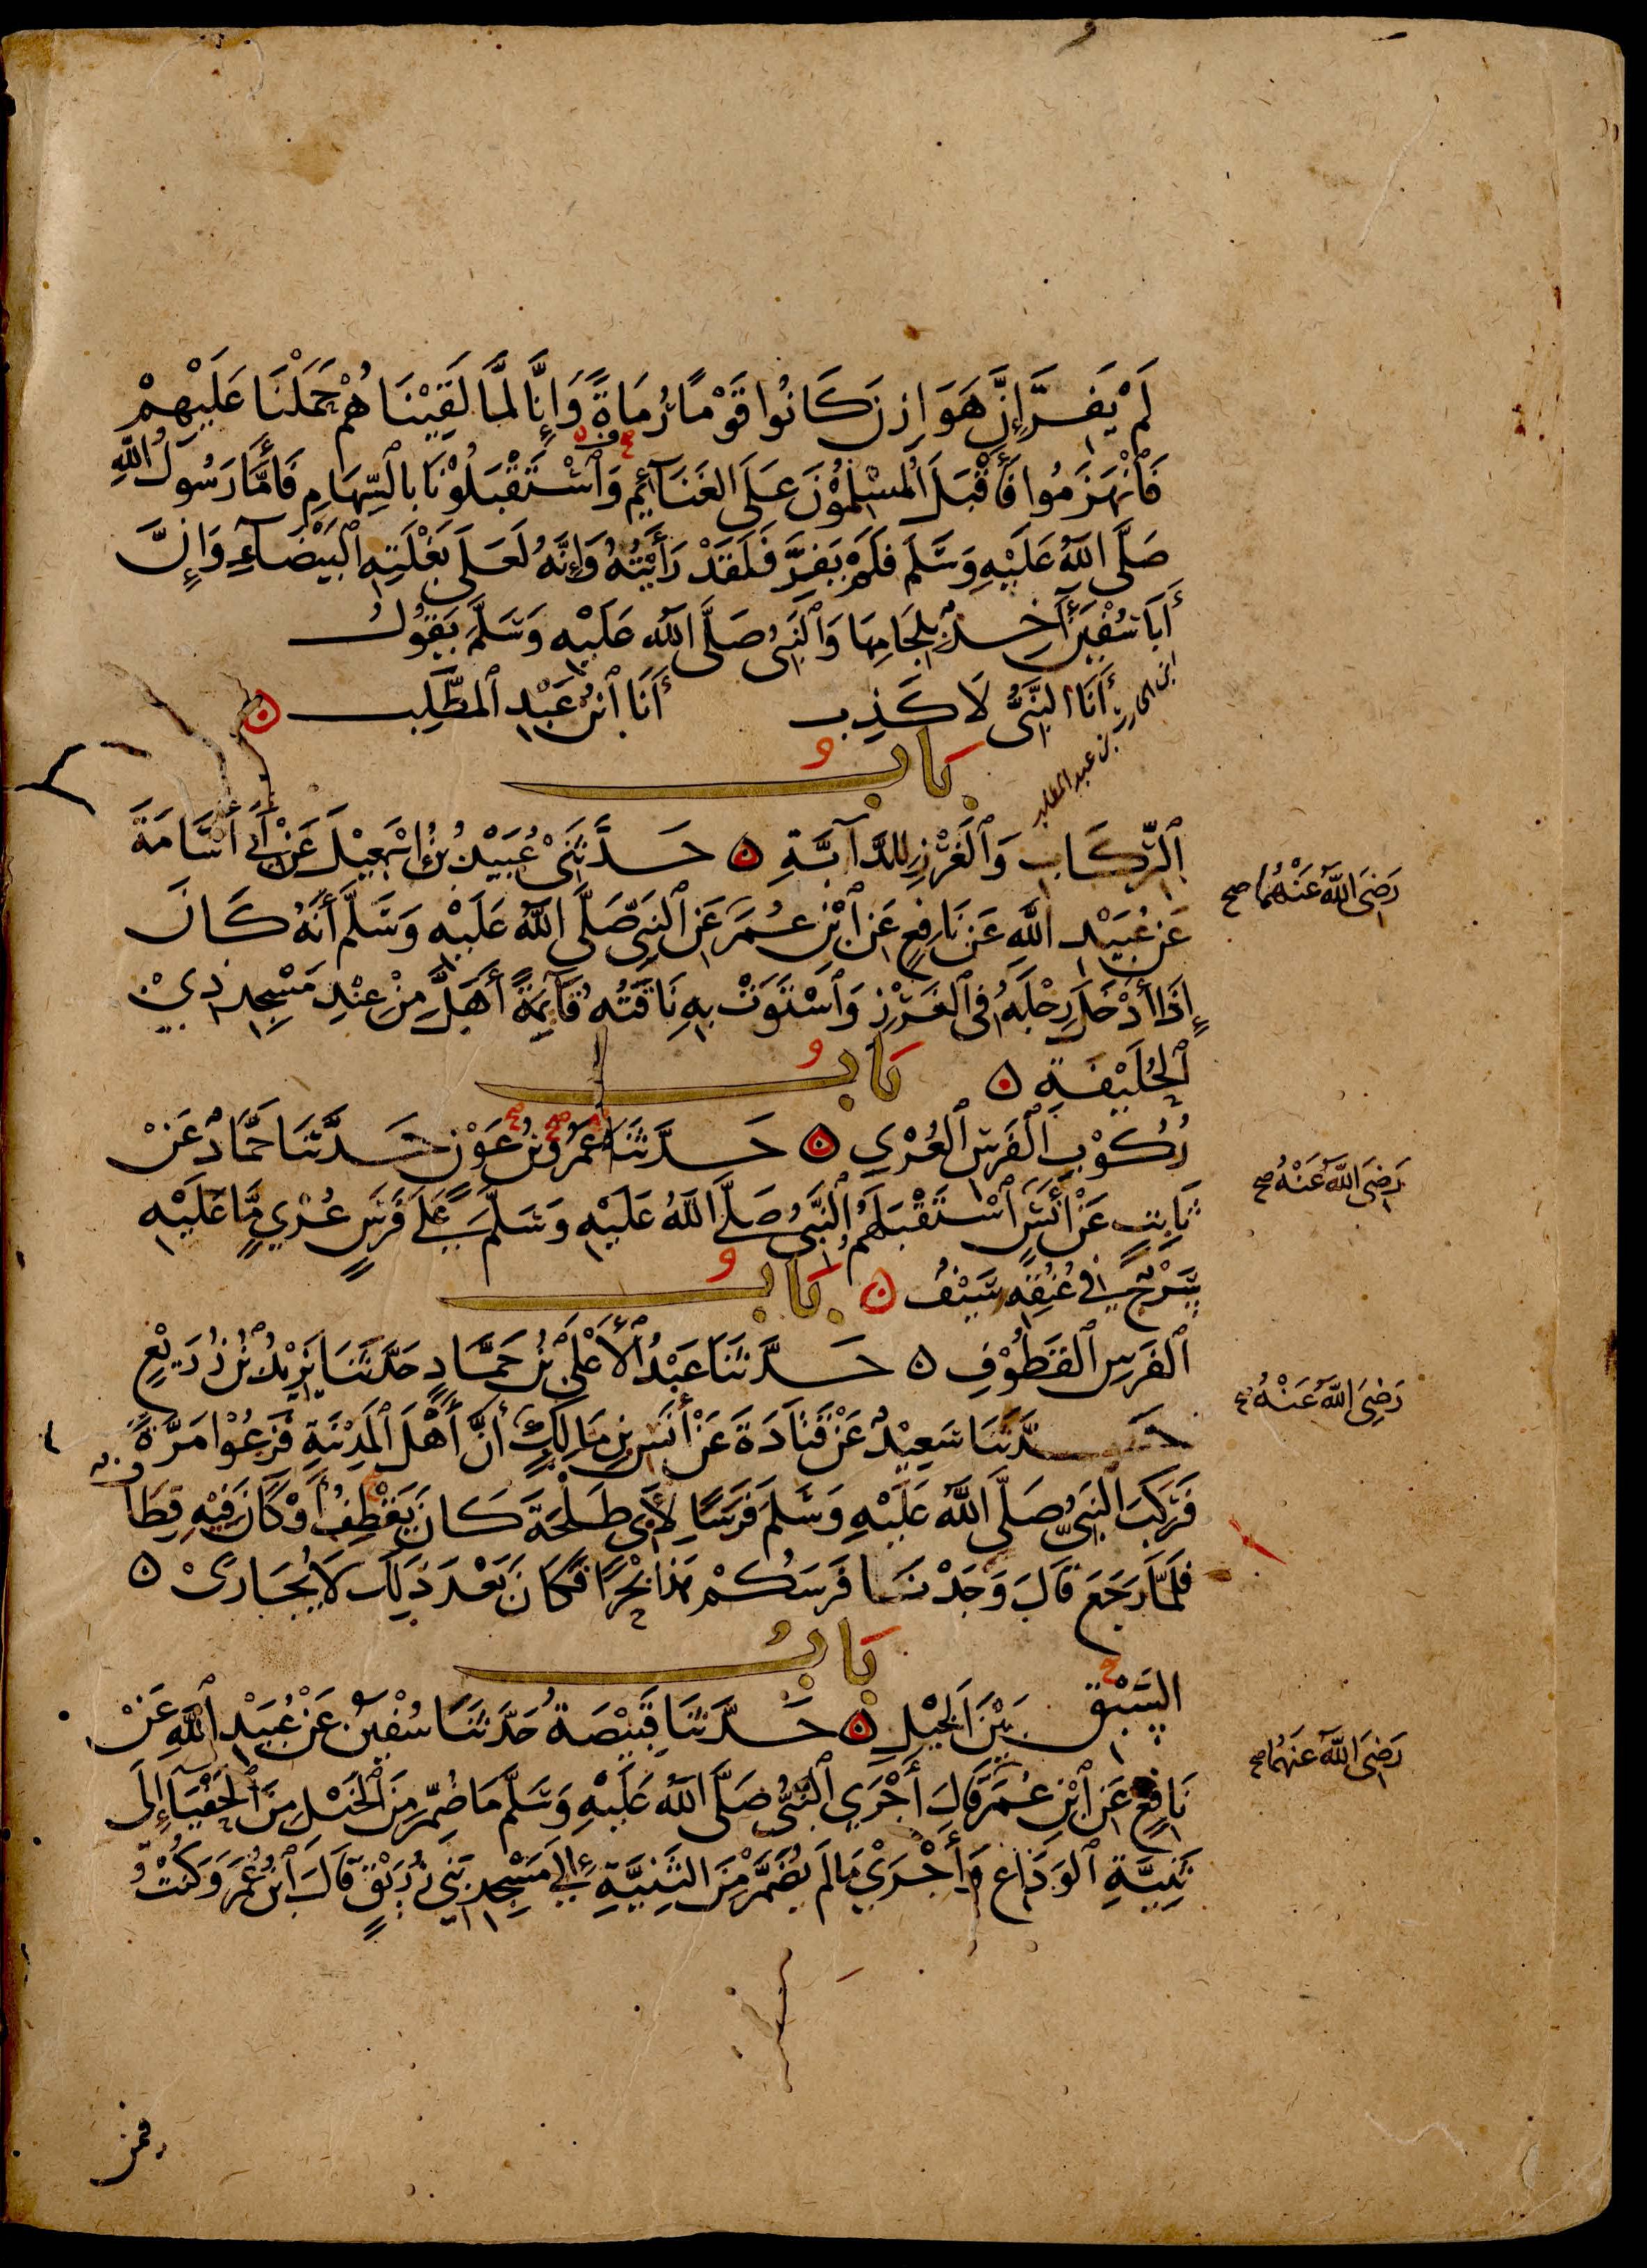 لَمْ يَفِرَّ إِنَّ هَوَازِنَ كَانُوا قَوْمًا رُمَاةً وَإِنَّا لَمَّا لَقِيْنَاهُمْ حَمَلْنَا عَلَيْهِمْ
فَٱنْهَزَمُوا فَأَقْبَلَ ٱلْمُسْلِمُوْنَ عَلَى الغَنَآئِمِ وَٱسْتَقْبَلُوْنَا بِالسِّهَامِ فَأَمَّا رَسُولُ اللَّهِ
صَلَّى اللَّهُ عَلَيْهِ وَسَلَّمَ فَلَمْ يَفِرَّ فَلَقَدْ رَأَيْتُهُ وَإِنَّهُ لَعَلَى بَغْلَتِهِ ٱلْبَيْضَآءِ وَإِنَّ
أَبَا سُفْيٰنَ آخِذٌ بِلِجَامِهَا وَٱلنَّبِىُّ صَلَّى اللَّهُ عَلَيْهِ وَسَلَّمَ يَقُوْلُ
أَنَا النَّبِىُّ لَا كَذِب أَنَا ٱبْنُ عَبْدِ ٱلمُطَّلِب
ابن الحارث بن عبد المطلب
بَابُ
ٱلرِّكَابِ وَٱلْغَرْزِ لِلدَّآبَّةِ حَدَّثَنِىْ عُبَيْدُ بْنُ إِسْمٰعِيْلَ عَنْ أَبِى أُسَامَةَ
رَضِىَ اللَّهُ عَنْهُمَا صح
عَنْ عُبَيْدِ اللَّهِ عَنْ نَافِعٍ عَنِ ٱبْنِ عُمَرَ عَنِ ٱلنَّبِىِّ صَلَّى اللَّهُ عَلَيْهِ وَسَلَّمَ أَنَّهُ كَانَ
إِذَا أَدْخَلَ رِجْلَهُ فِى ٱلْغَرْزِ وَٱسْتَوَتْ بِهِ نَاقَتُهُ قَآئِمَةً أَهَلَّ مِنْ عِنْدِ مَسْجِدِ ذِيْ
ٱلْحُلَيْفَةِ
بَابُ
رُكُوْبِ ٱلْفَرَسِ ٱلْعُرْيِ حَدَّثَنَا عَمْرُو بْنُ عَوْنٍ حَدَّثَنَا حَمَّادٌ عَنْ
رَضِىَ اللَّهُ عَنْهُ صح
ثَابِتٍ عَنْ أَنَسٍ ٱسْتَقْبَلَهُمُ ٱلنَّبِىُّ صَلَّى اللَّهُ عَلَيْهِ وَسَلَّمَ عَلَى فَرَسٍ عُرْيٍ مَّا عَلَيْهِ
سَرْجٌ فِى عُنُقِهِ سَيْفٌ
بَابُ
ٱلفَرَسِ ٱلقَطُوْفِ حَدَّثَنَا عَبْدُ ٱلْأَعْلَى بْنُ حَمَّادٍ حَدَّثَنَا يَزِيْدُ بْنُ زُرَيْعٍ
رَضِىَ اللَّهُ عَنْهُ
حَدَّثَنَا سَعِيْدٌ عَنْ قَتَادَةَ عَنْ أَنَسِ بْنِ مَالِكٍ أَنَّ أَهْلَ ٱلْمَدِيْنَةِ فَزِعُوْا مَرَّةً
فَرَكِبَ النَّبِىُّ صَلَّى اللَّهُ عَلَيْهِ وَسَلَّمَ فَرَسًا لِأَبِى طَلْحَةَ كَانَ يَقْطِفُ أَوْ كَانَ فِيْهِ قِطَافٌ
فَلَمَّا رَجَعَ قَالَ وَجَدْنَا فَرَسَكُمْ هٰذَا بَحْرًا فَكَانَ بَعْدَ ذٰلِكَ لَا يُجَارَىْ
بَابُ
السَّبْقِ بَيْنَ ٱلْخَيْلِ حَدَّثَنَا قَبِيْصَةُ حَدَّثَنَا سُفْيٰنُ عَنْ عُبَيْدِ ٱللَّهِ عَنْ
رَضِىَ اللَّهُ عَنْهُمَا صح
نَافِعٍ عَنِ ٱبْنِ عُمَرَ قَالَ أَجْرَي ٱلنَّبِىُّ صَلَّى اللَّهُ عَلَيْهِ وَسَلَّمَ مَا ضُمِّرَ مِنَ ٱلْخَيْلِ مِنَ ٱلْحَفْيَآءِ إِلَى
ثَنِيَّةِ ٱلْوَدَاعِ وَأَجْرَيْ مَا لَمْ يُضَمَّرْ مِنَ الثَّنِيَّةِ إِلَي مَسْجِدِ بَنِى زُرَيْقٍ قَالَ ٱبْنُ عُمَرَ وَكُنْتُ
فمن